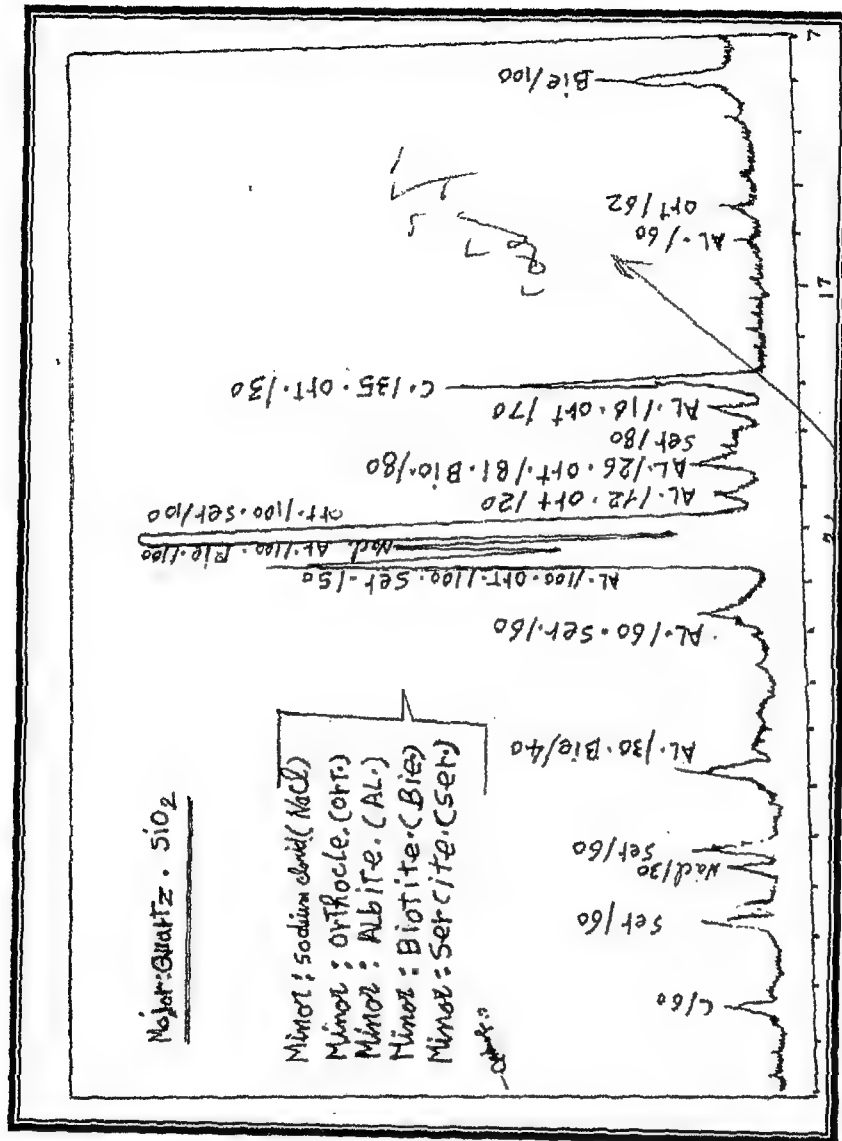 Major:Quartz. SiO2
Minor: sodium cloid(NaCl)
Minor: orthocle.(ort.)
Minor: Albite.(AL.)
Minor: Biotite.(Bie)
Minor: Sercite.(ser.)
C/60
Ser/60
Nacl/30
Ser/60
AL./30.Bie/40
AL./60.Ser./60
AL./100.ort./100.Ser./50
Nacl. AL./100.Bie./100
ort./100.ser/100
AL./12.ort/20
AL./26.ort./81.Bio./80
ser/80
AL./16.ort/70
C./35.ort./30
AL./60
ort/62
Bie/100
17
7